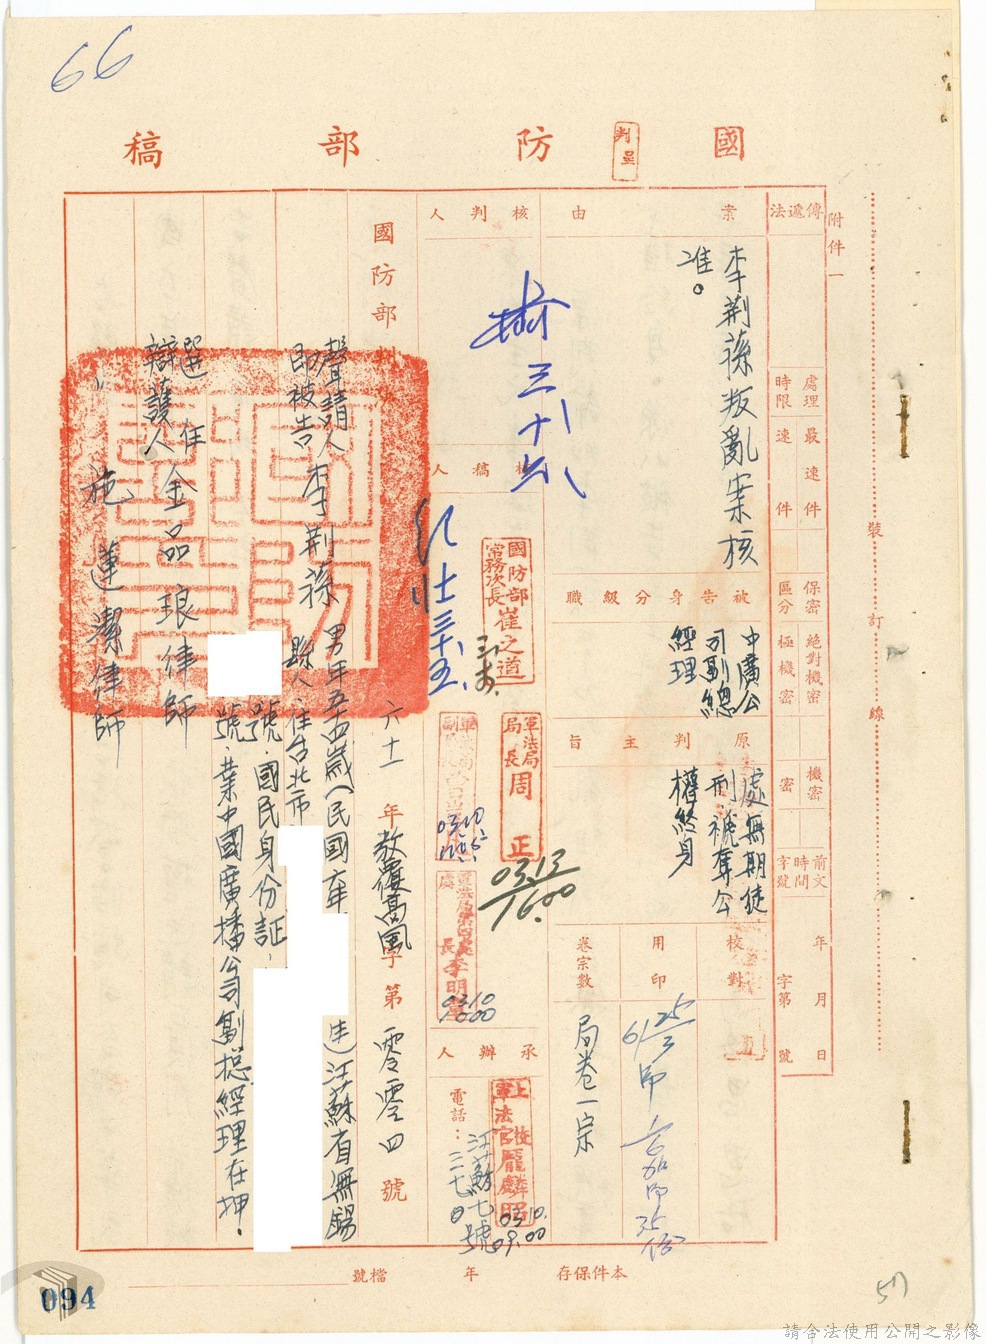 66
國防部稿
判呈
附件一
傳遞法
處理時限
最速件
速件
保密區分
絕對機密
極機密
機密
密
前文時間字號
年月日
字第號
裝訂線
案由
李荊蓀叛亂案核
准。
被告身分級職
中廣公
司副總
經理
原判主旨
處無期徒
刑褫奪公
權終身
校對
用印
卷宗數
局卷一宗
核判人
核稿人
國防部
常務次長
崔之道
軍法局
局長
周正
03.13
16.00
軍法局第四處
處長
李明
0310
1000
承辦人
上校
軍法官
龐麟昭
0310.
09.00
江蘇七號
電話:
國防部
六十一年教覆高風字第零零四號
聲請人
即被告
李荊蓀
男年五四歲(民國六年
生)江蘇省無錫
縣人住台北市
號,國民身份証,
號,業中國廣播公司副總經理在押。
選任
辯護人
金品琅律師
施蓮潔律師
本件保存年
檔號
094
57
請合法使用公開之影像